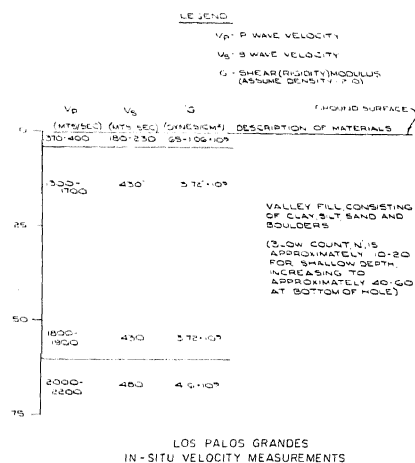 LEGEND
Vp - P WAVE VELOCITY
Vs - S WAVE VELOCITY
G - SHEAR (RIGIDITY) MODULUS
(ASSUME DENSITY 2.0)
GROUND SURFACE
Vp Vs G
(MTS/SEC) (MTS SEC) (DYNES/CM²) DESCRIPTION OF MATERIALS
0 370-400 180-230 .65-1.06×10⁹
1300-
1700 430 3.72×10⁹
VALLEY FILL, CONSISTING
OF CLAY, SILT, SAND AND
BOULDERS
25
(BLOW COUNT, N, IS
APPROXIMATELY 10-20
FOR SHALLOW DEPTH,
INCREASING TO
APPROXIMATELY 40-60
AT BOTTOM OF HOLE)
50
1800-
1900 430 3.72×10⁹
2000-
2200 480
75
LOS PALOS GRANDES
IN-SITU VELOCITY MEASUREMENTS